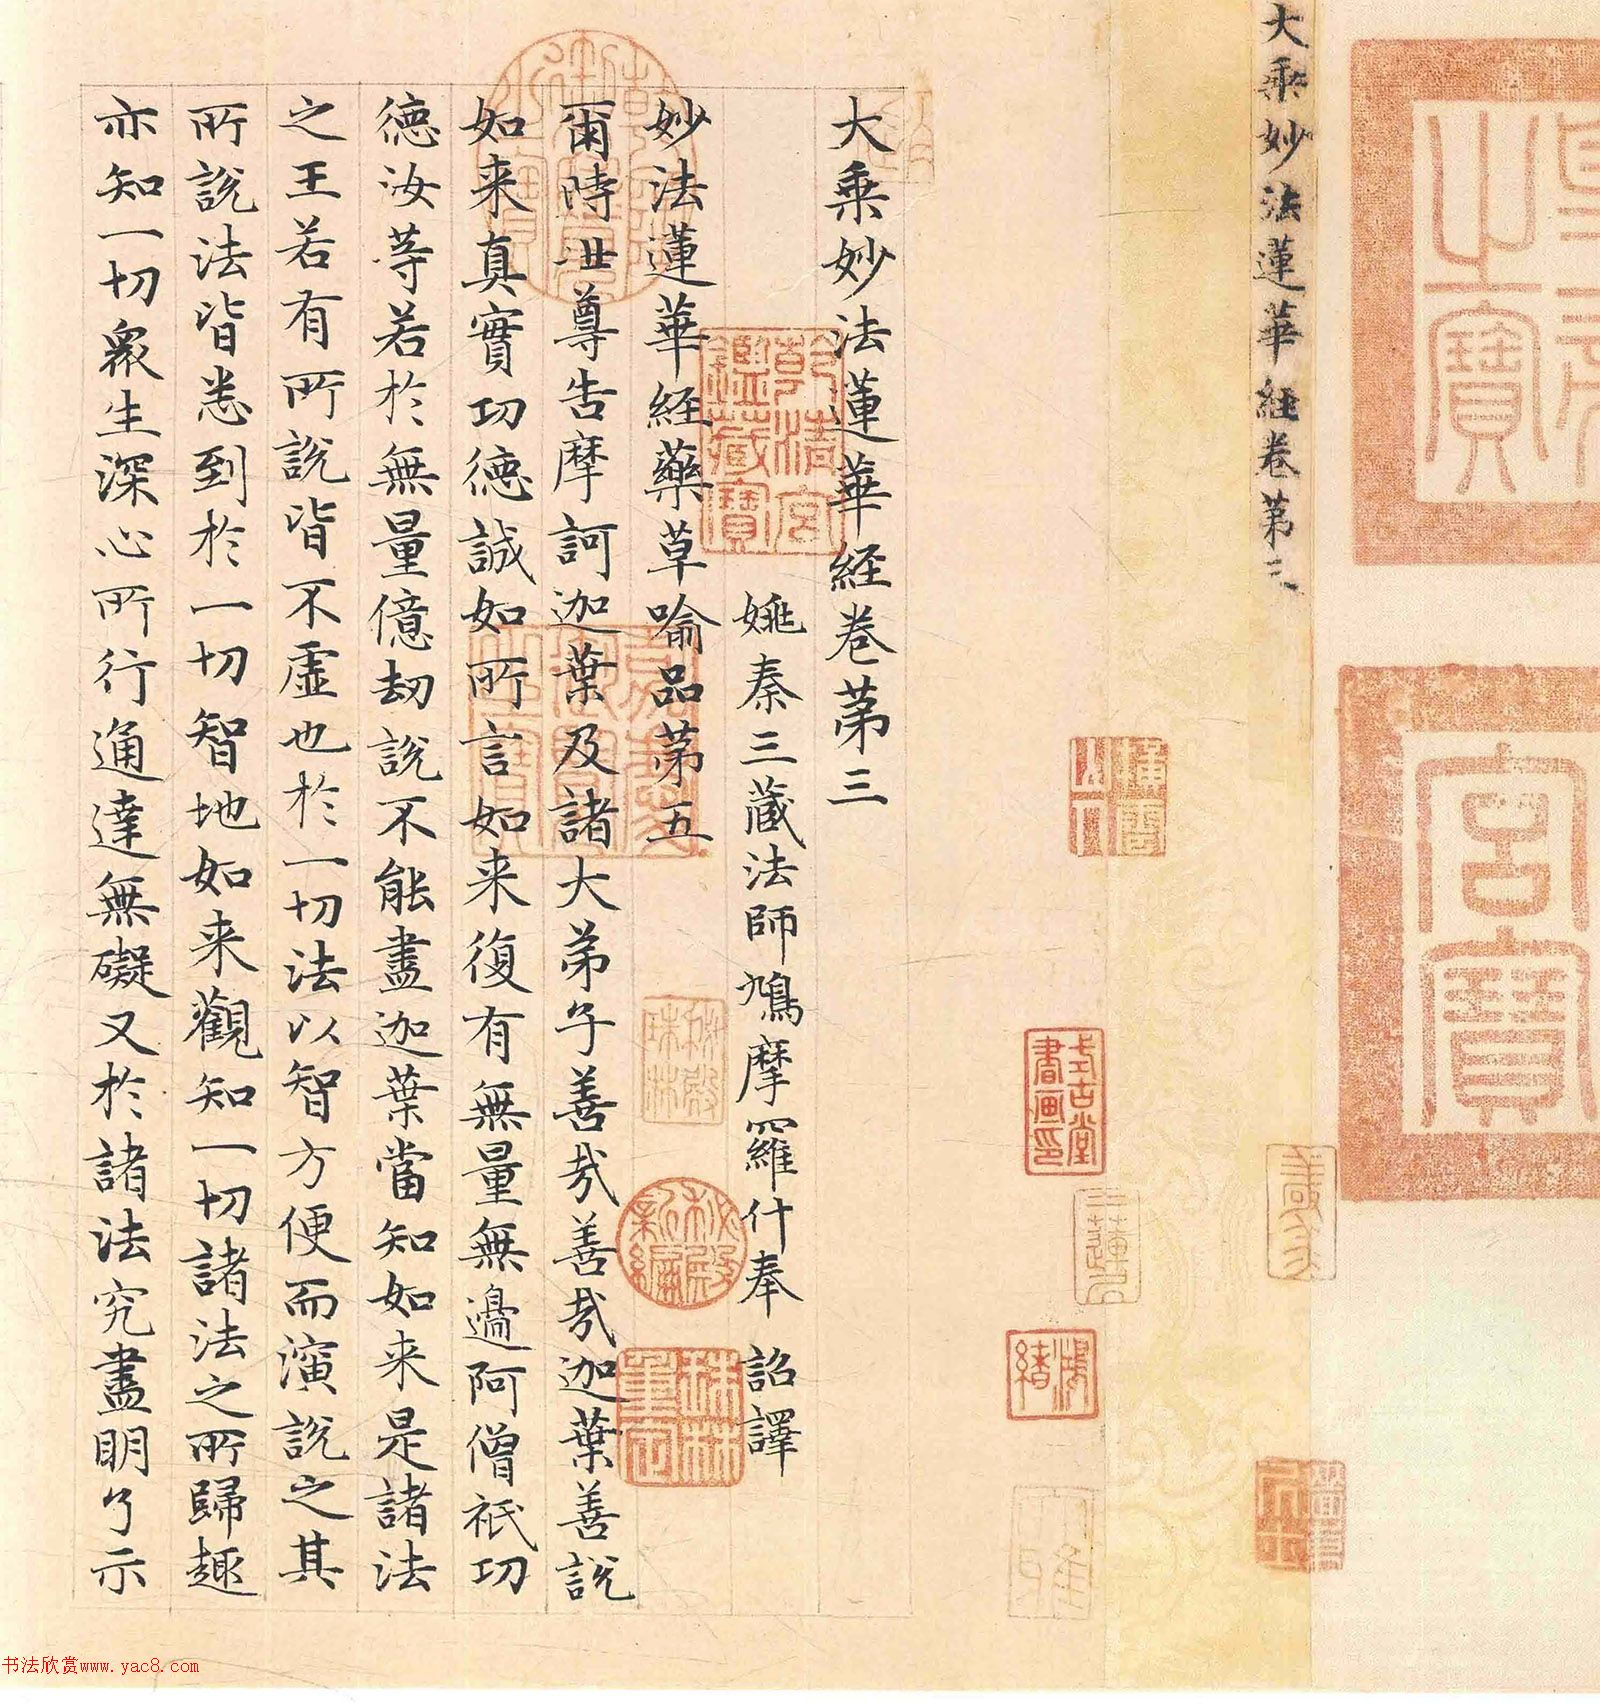 大乘妙法蓮華経卷苐三
大乘妙法蓮華経卷苐三
姚秦三藏法師鳩摩羅什奉 詔譯
妙法蓮華経藥草喻品苐五
爾時世尊告摩訶迦葉及諸大弟子善哉善哉迦葉善說
如来真實功德誠如所言如来復有無量無邊阿僧祇功
德汝等若於無量億劫說不能盡迦葉當知如来是諸法
之王若有所說皆不虛也於一切法以智方便而演說之其
所說法皆悉到於一切智地如来觀知一切諸法之所歸趣
亦知一切眾生深心所行通達無礙又於諸法究盡明了示
乾清宮
鑑藏寶
秘殿
新編
珠林
重定
秘殿
珠林
式古堂
書画印
宮
寶
之寶
书法欣赏www.yac8.com